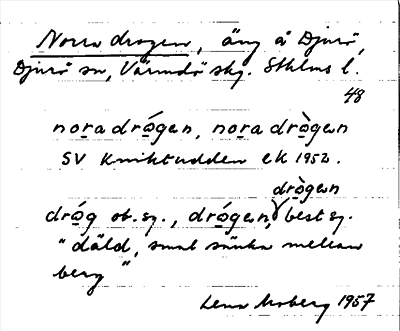 Norra drogen, äng å Djurö,
Djurö sn, Värmdö skg. Sthlms l.
48
nora drógen, nora drògen
SV Kniktudden ek 1952.
drògen
dróg ob. sg., drógen, best sg.
"däld, smal sänka mellan
berg"
Lena Moberg 1957